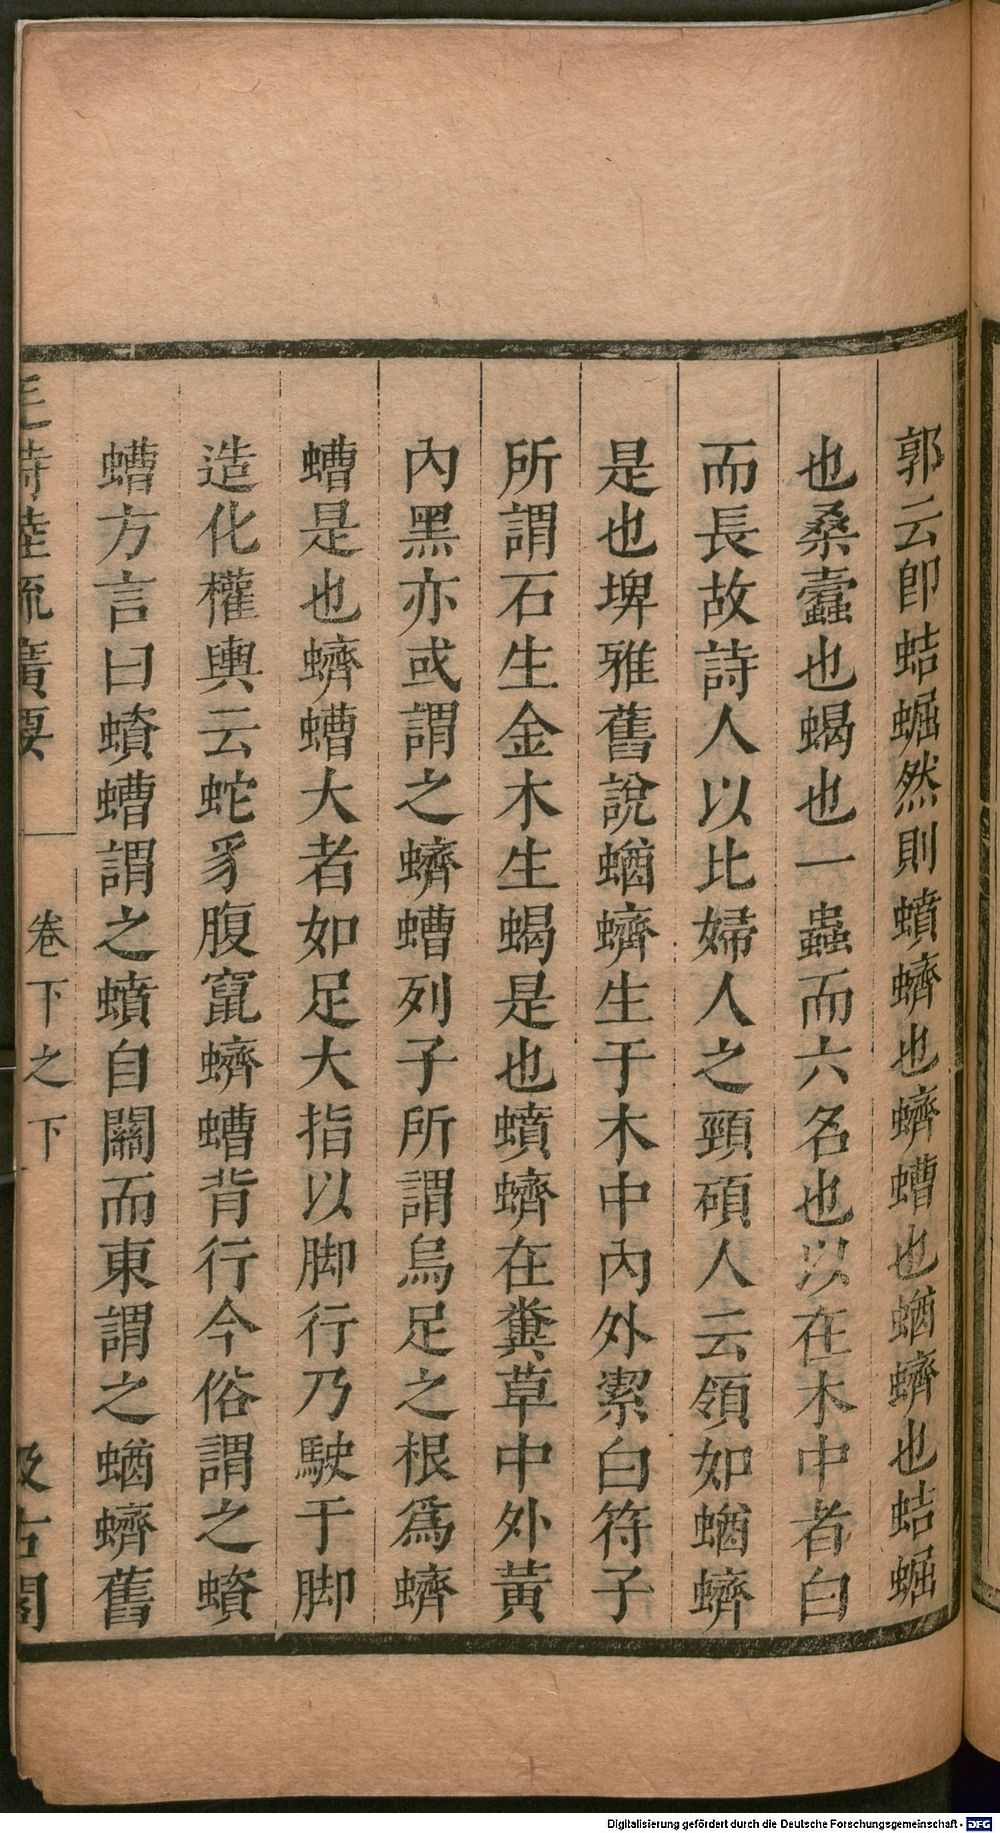 郭云卽蛣𧌑然則蟦蠐也蠐螬也蝤蠐也蛣𧌑
也桑蠹也蝎也一蟲而六名也以在木中者白
而長故詩人以比婦人之頸碩人云領如蝤蠐
是也埤雅舊說蝤蠐生于木中內外潔白符子
所謂石生金木生蝎是也蟦蠐在糞草中外黃
內黑亦或謂之蠐螬列子所謂烏足之根爲蠐
螬是也蠐螬大者如足大指以脚行乃駛于脚
造化權輿云蛇豸腹竄蠐螬背行今俗謂之蟦
螬方言曰蟦螬謂之蟦自關而東謂之蝤蠐舊
毛詩陸疏廣要 卷下之下 汲古閣
Digitalisierung gefördert durch die Deutsche Forschungsgemeinschaft - DFG